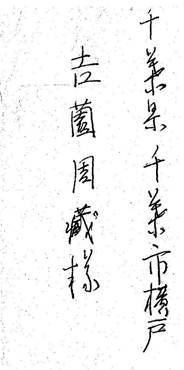 千葉県千葉市横戸
吉薗周蔵様